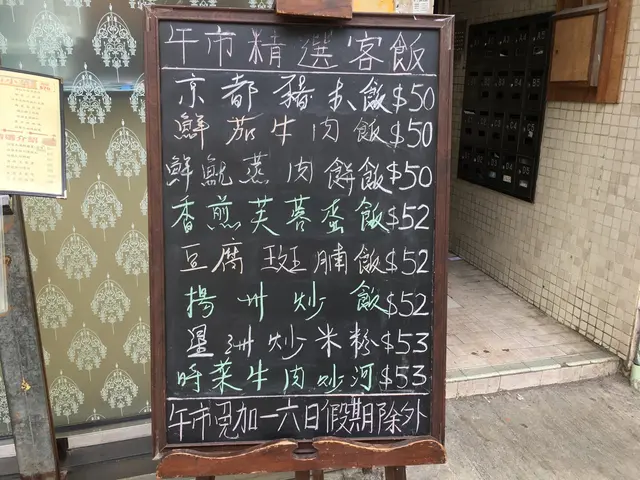 午市精選客飯
京都豬扒飯$50
鮮茄牛肉飯$50
鮮魷蒸肉餅飯$50
香煎芙蓉蛋飯$52
豆腐斑腩飯$52
揚州炒飯$52
星洲炒米粉$53
時菜牛肉炒河$53
午市免加一六日假期除外